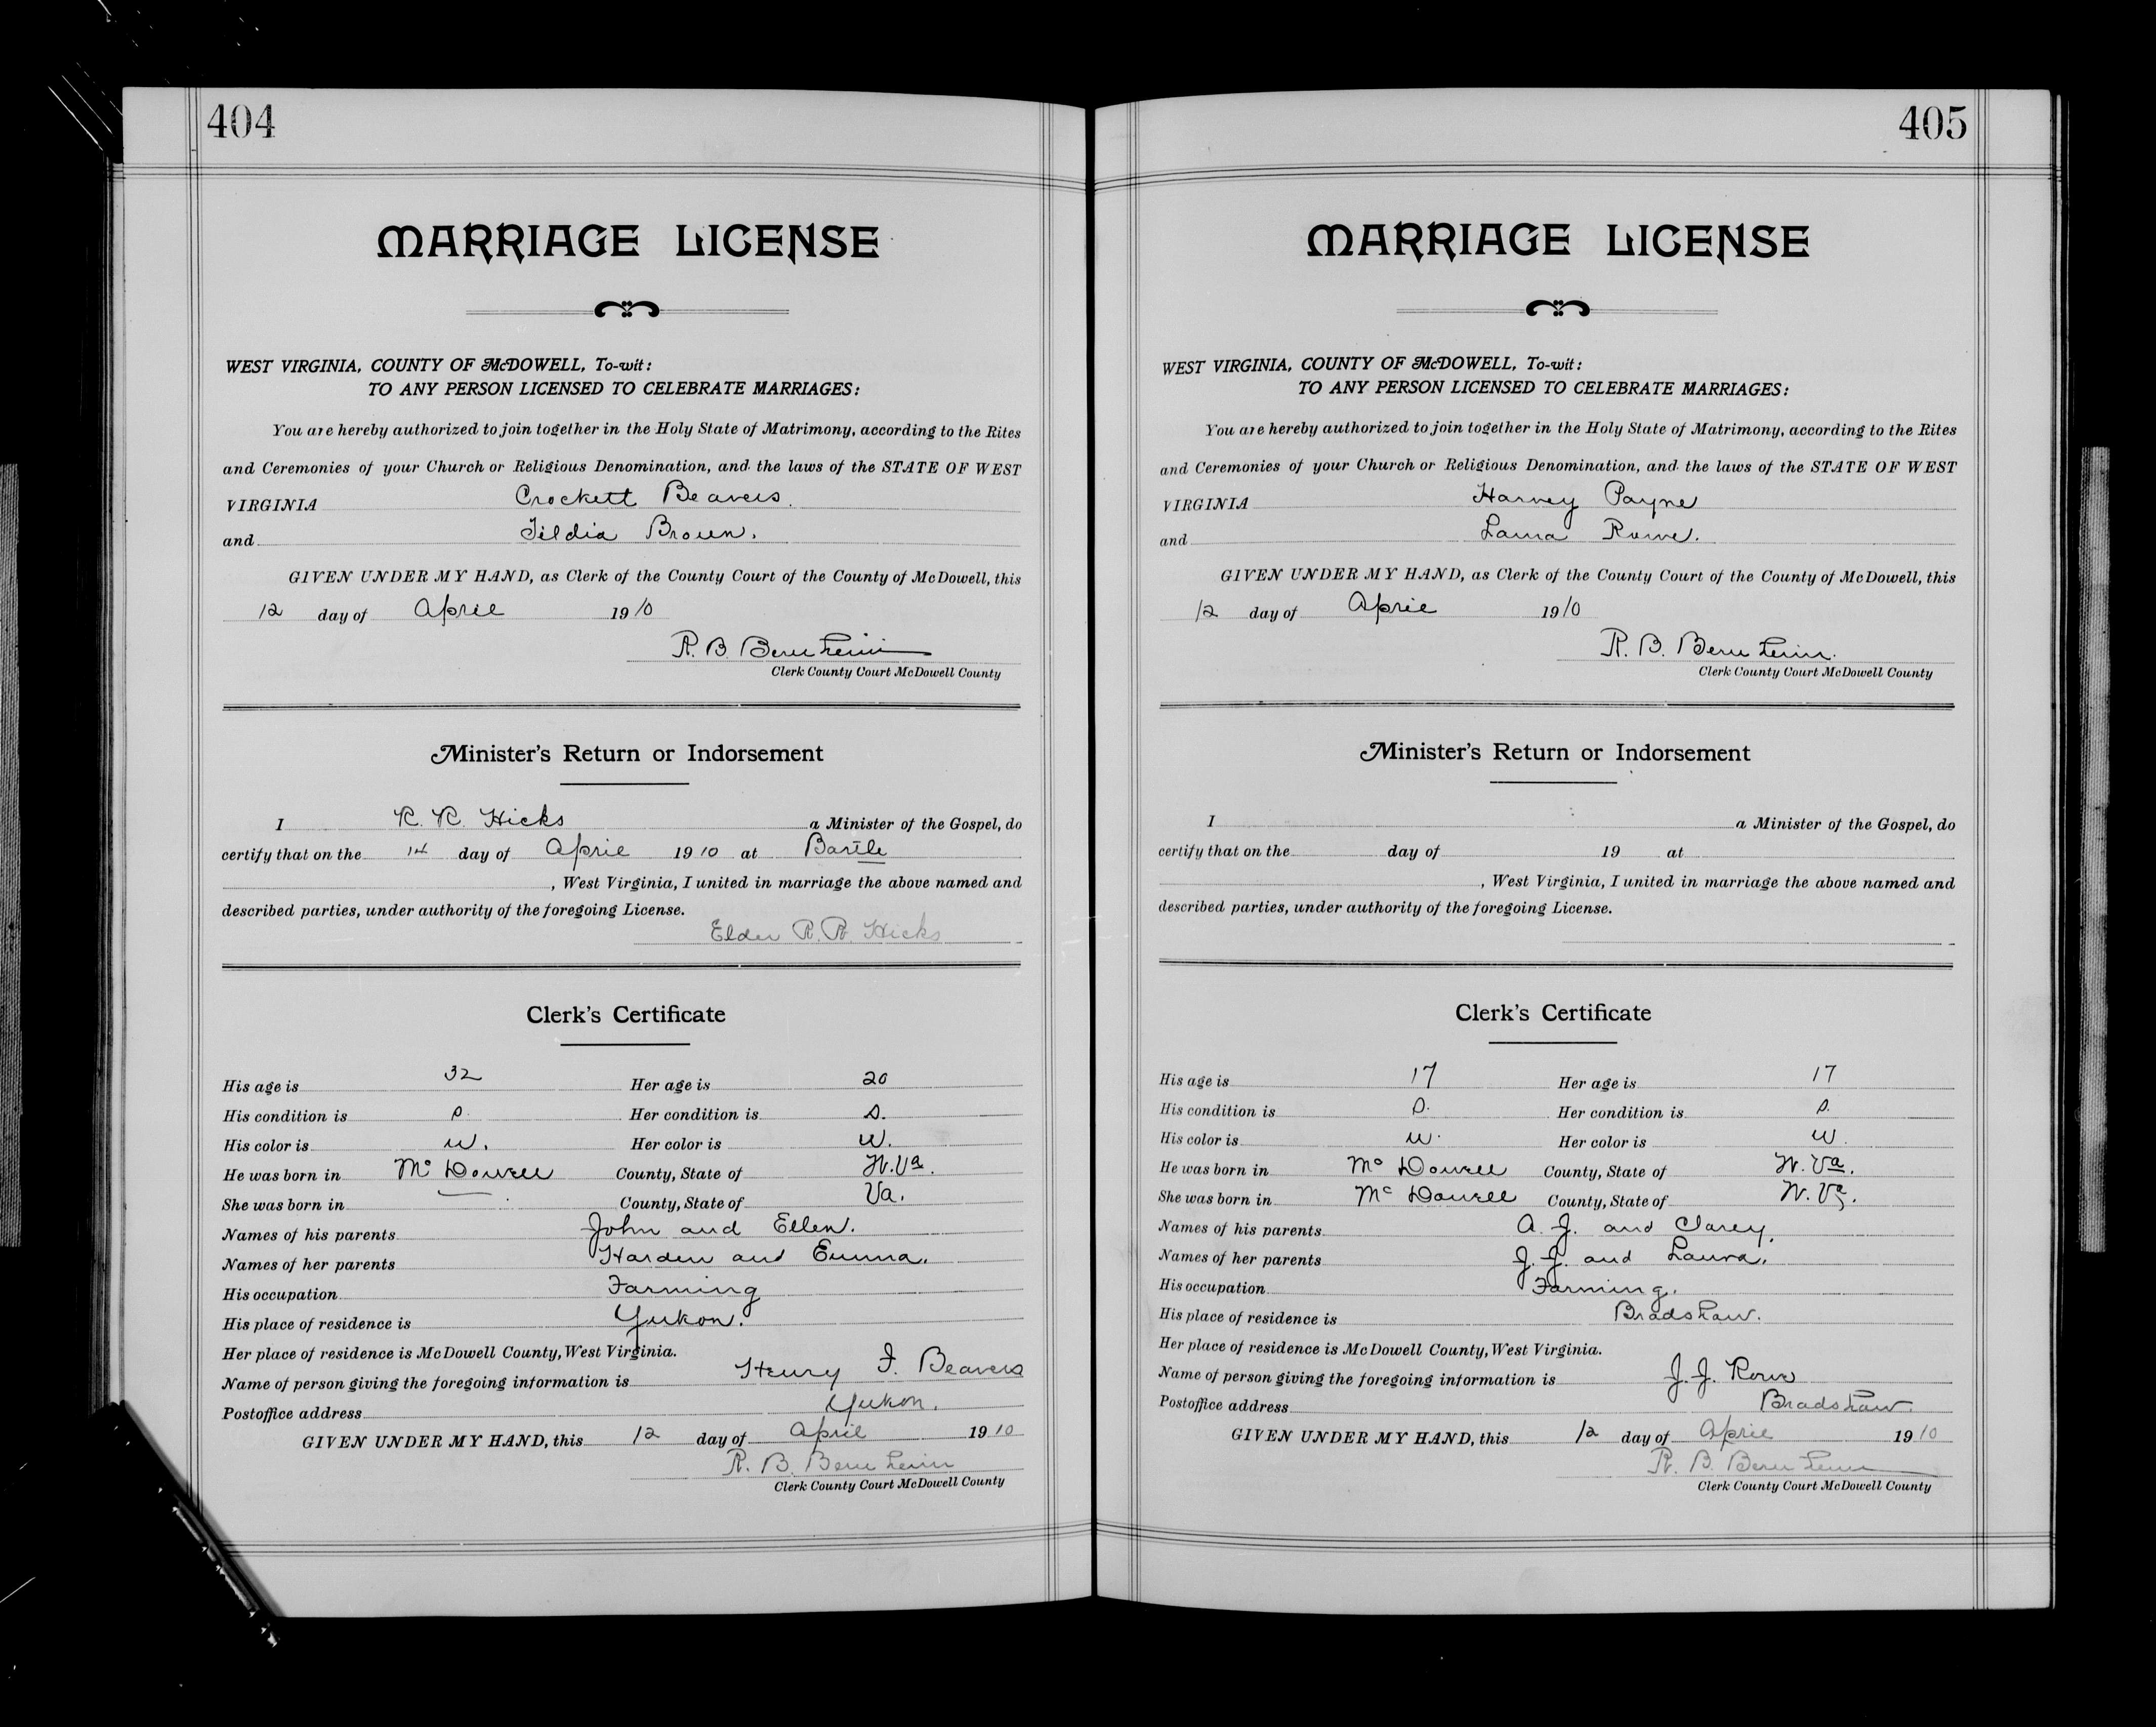 404
MARRIAGE LICENSE
WEST VIRGINIA, COUNTY OF McDOWELL, To-wit:
TO ANY PERSON LICENSED TO CELEBRATE MARRIAGES:
You are hereby authorized to join together in the Holy State of Matrimony, according to the Rites
and Ceremonies of your Church or Religious Denomination, and the laws of the STATE OF WEST
VIRGINIA Crockett Beavers.
and Tildia Brown.
GIVEN UNDER MY HAND, as Clerk of the County Court of the County of McDowell, this
12 day of April 1910
R. B. Bernheim
Clerk County Court McDowell County
Minister's Return or Indorsement
I R. R. Hicks a Minister of the Gospel, do
certify that on the 14 day of April 1910 at Bartle
, West Virginia, I united in marriage the above named and
described parties, under authority of the foregoing License.
Elder R. R. Hicks
Clerk's Certificate
His age is 32 Her age is 20
His condition is S. Her condition is S.
His color is W. Her color is W.
He was born in McDowell County, State of W. Va.
She was born in — County, State of Va.
Names of his parents John and Ellen.
Names of her parents Harden and Emma.
His occupation Farming
His place of residence is Yukon.
Her place of residence is McDowell County, West Virginia.
Name of person giving the foregoing information is Henry F. Beavers
Postoffice address Yukon.
GIVEN UNDER MY HAND, this 12 day of April 1910
R. B. Bernheim
Clerk County Court McDowell County
405
MARRIAGE LICENSE
WEST VIRGINIA, COUNTY OF McDOWELL, To-wit:
TO ANY PERSON LICENSED TO CELEBRATE MARRIAGES:
You are hereby authorized to join together in the Holy State of Matrimony, according to the Rites
and Ceremonies of your Church or Religious Denomination, and the laws of the STATE OF WEST
VIRGINIA Harvey Payne
and Laura Rowe.
GIVEN UNDER MY HAND, as Clerk of the County Court of the County of McDowell, this
12 day of April 1910
R. B. Bernheim.
Clerk County Court McDowell County
Minister's Return or Indorsement
I a Minister of the Gospel, do
certify that on the day of 19 at
, West Virginia, I united in marriage the above named and
described parties, under authority of the foregoing License.
Clerk's Certificate
His age is 17 Her age is 17
His condition is S. Her condition is S.
His color is W. Her color is W.
He was born in McDowell County, State of W. Va.
She was born in McDowell County, State of W. Va.
Names of his parents A. J. and Clarey.
Names of her parents J. J. and Laura.
His occupation Farming.
His place of residence is Bradshaw.
Her place of residence is McDowell County, West Virginia.
Name of person giving the foregoing information is J. J. Rowe
Postoffice address Bradshaw.
GIVEN UNDER MY HAND, this 12 day of April 1910
R. B. Bernheim
Clerk County Court McDowell County